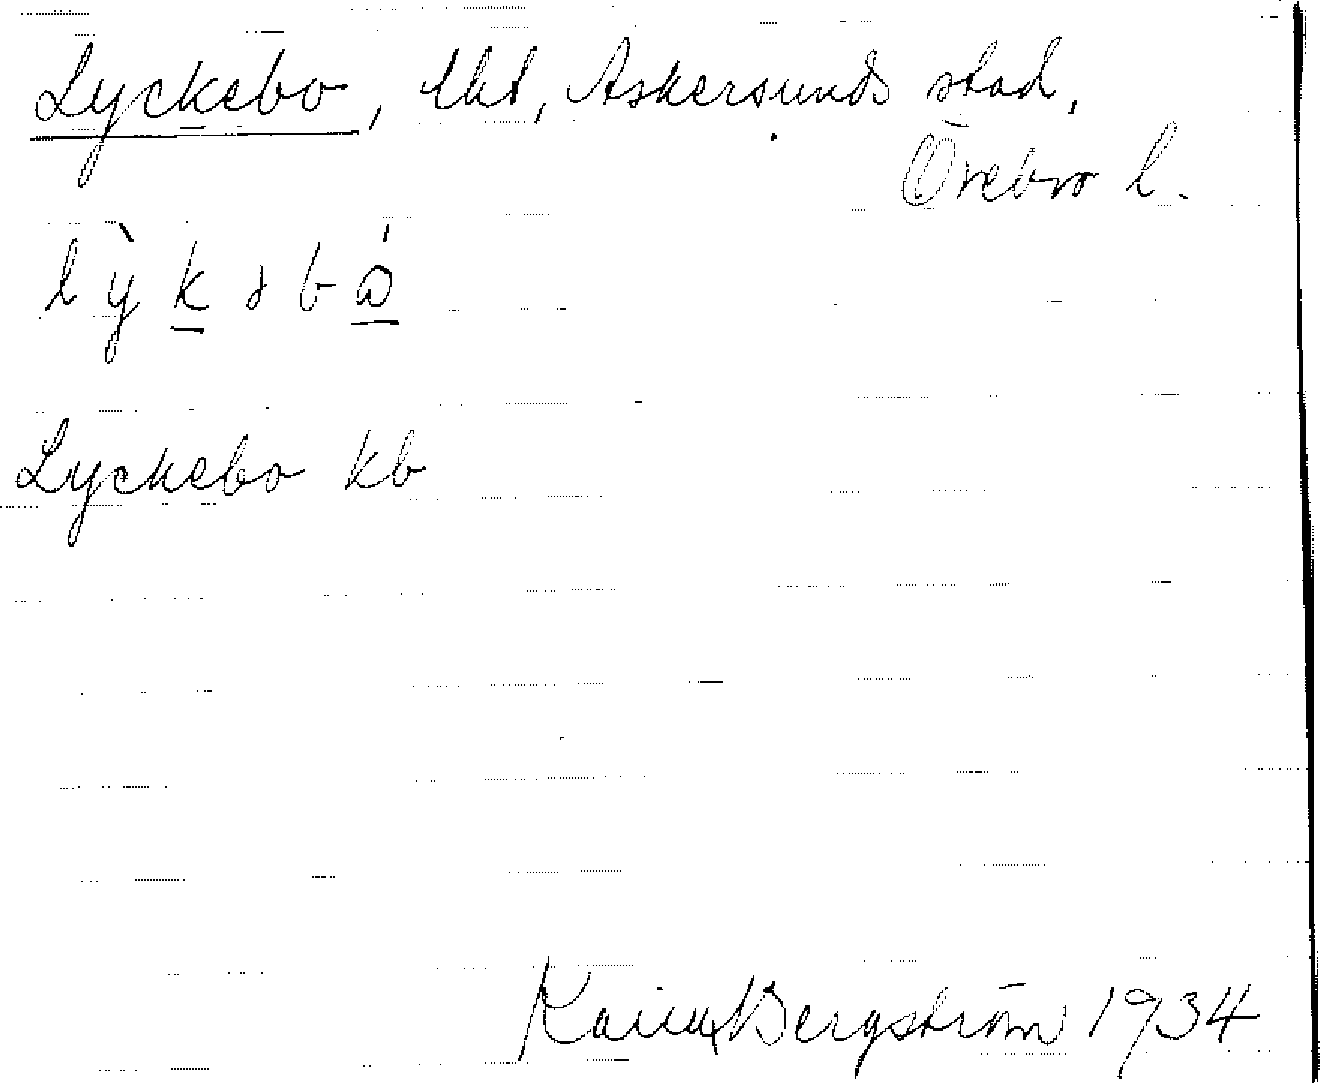 Lyckebo, lht, Askersunds stad,
Örebro l.
lỳkəbǻ
Lyckebo kb
Karin Bergström 1934